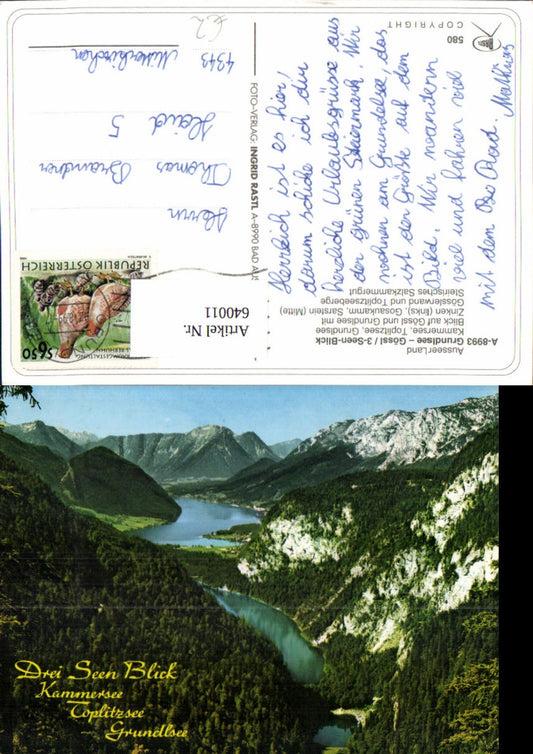 A-8993 Grundlsee – Gössl / 3-Seen-Blick
AusseerLand
Kammersee, Toplitzsee, Grundlsee,
Blick auf Gössl und Grundlsee mit
Zinken (links), Gosaukamm, Sarstein (Mitte)
Gösslerwand und Toplitzseeberge
Steirisches Salzkammergut
Herrlich ist es hier!
darum schicke ich dir
herzliche Urlaubsgrüsse aus
der grünen Steiermark. Wir
wohnen am Grundelsee, das
ist der Größte auf dem
Bild. Wir wandern
viel und fahren viel
mit dem Rad. Matthias
580
COPYRIGHT
FOTO-VERLAG INGRID RASTL A-8990 BAD AUS
Artikel Nr.
640011
REPUBLIK ÖSTERREICH
S 6.50
Herrn
Thomas
Brandner
Haid 5
4343
Mitterkirchen
Drei Seen Blick
Kammersee
Toplitzsee
Grundlsee